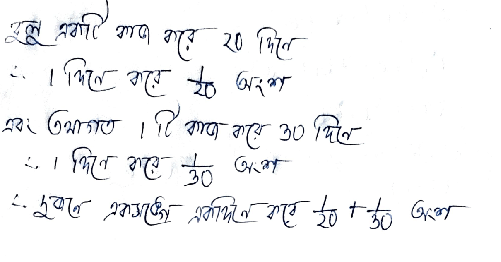 বুলু একটি কাজ করে 20 দিনে
∴ 1 দিনে করে 1/20 অংশ
এবং তথাগত 1 টি কাজ করে 30 দিনে
∴ 1 দিনে করে 1/30 অংশ
∴ দুজনে একসঙ্গে একদিনে করে 1/20 + 1/30 অংশ